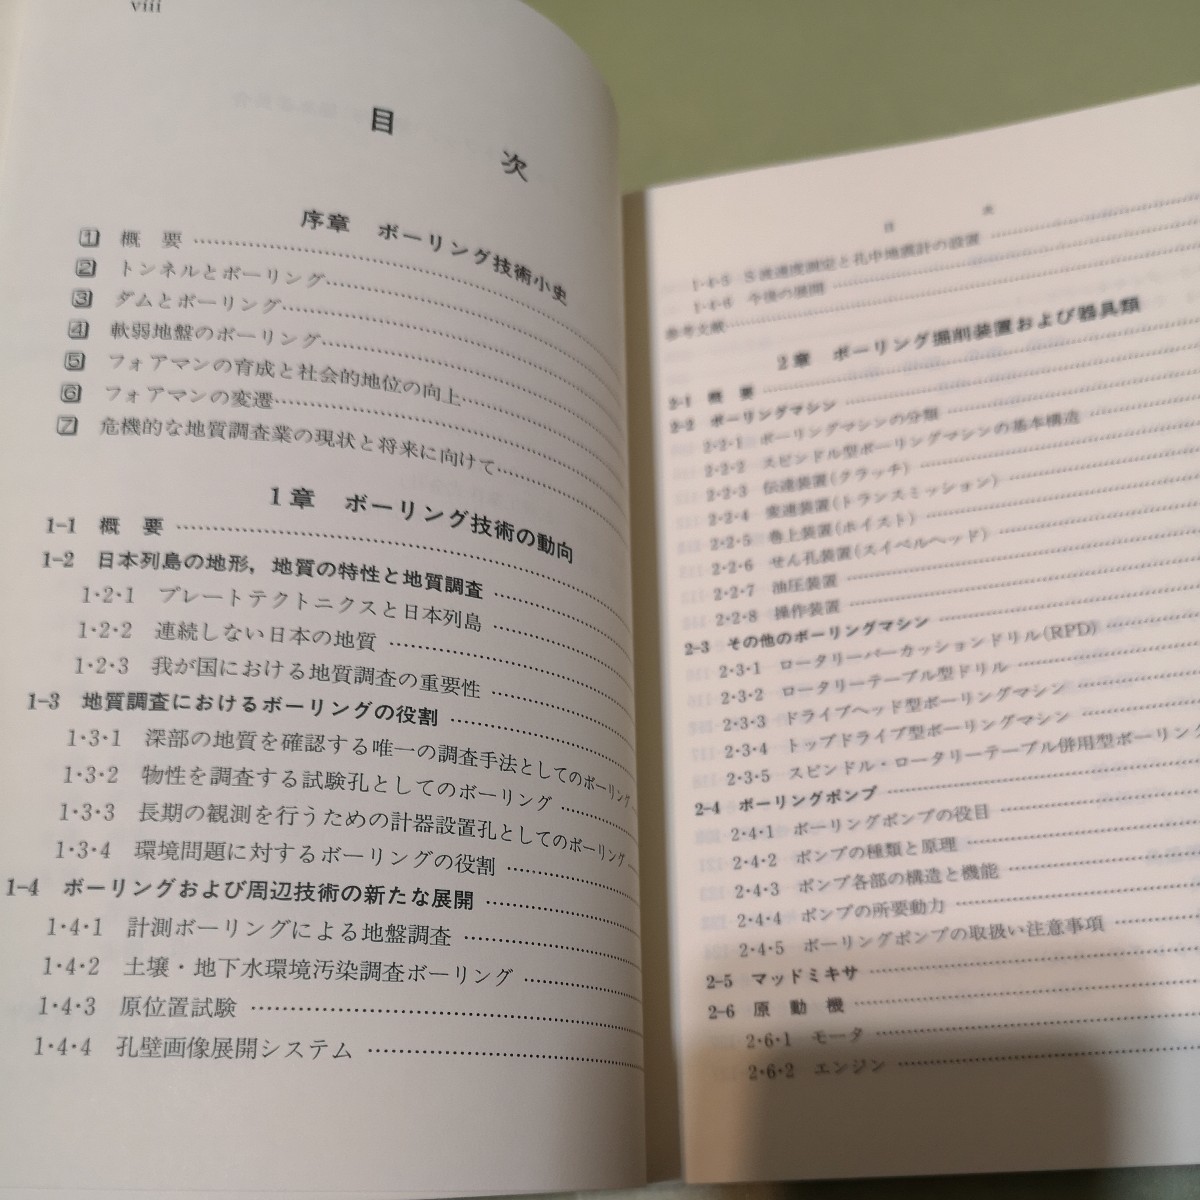 viii
目次
序章 ボーリング技術小史
1 概要
2 トンネルとボーリング
3 ダムとボーリング
4 軟弱地盤のボーリング
5 フォアマンの育成と社会的地位の向上
6 フォアマンの変遷
7 危機的な地質調査業の現状と将来に向けて
1章 ボーリング技術の動向
1-1 概要
1-2 日本列島の地形，地質の特性と地質調査
1・2・1 プレートテクトニクスと日本列島
1・2・2 連続しない日本の地質
1・2・3 我が国における地質調査の重要性
1-3 地質調査におけるボーリングの役割
1・3・1 深部の地質を確認する唯一の調査手法としてのボーリング
1・3・2 物性を調査する試験孔としてのボーリング
1・3・3 長期の観測を行うための計器設置孔としてのボーリング
1・3・4 環境問題に対するボーリングの役割
1-4 ボーリングおよび周辺技術の新たな展開
1・4・1 計測ボーリングによる地盤調査
1・4・2 土壌・地下水環境汚染調査ボーリング
1・4・3 原位置試験
1・4・4 孔壁画像展開システム
目次
1・4・5 S波速度測定と孔中地震計の設置
1・4・6 今後の展開
参考文献
2章 ボーリング掘削装置および器具類
2-1 概要
2-2 ボーリングマシン
2・2・1 ボーリングマシンの分類
2・2・2 スピンドル型ボーリングマシンの基本構造
2・2・3 伝達装置(クラッチ)
2・2・4 変速装置(トランスミッション)
2・2・5 巻上装置(ホイスト)
2・2・6 せん孔装置(スイベルヘッド)
2・2・7 油圧装置
2・2・8 操作装置
2-3 その他のボーリングマシン
2・3・1 ロータリーパーカッションドリル(RPD)
2・3・2 ロータリーテーブル型ドリル
2・3・3 ドライブヘッド型ボーリングマシン
2・3・4 トップドライブ型ボーリングマシン
2・3・5 スピンドル・ロータリーテーブル併用型ボーリング
2-4 ボーリングポンプ
2・4・1 ボーリングポンプの役目
2・4・2 ポンプの種類と原理
2・4・3 ポンプ各部の構造と機能
2・4・4 ポンプの所要動力
2・4・5 ボーリングポンプの取扱い注意事項
2-5 マッドミキサ
2-6 原動機
2・6・1 モータ
2・6・2 エンジン